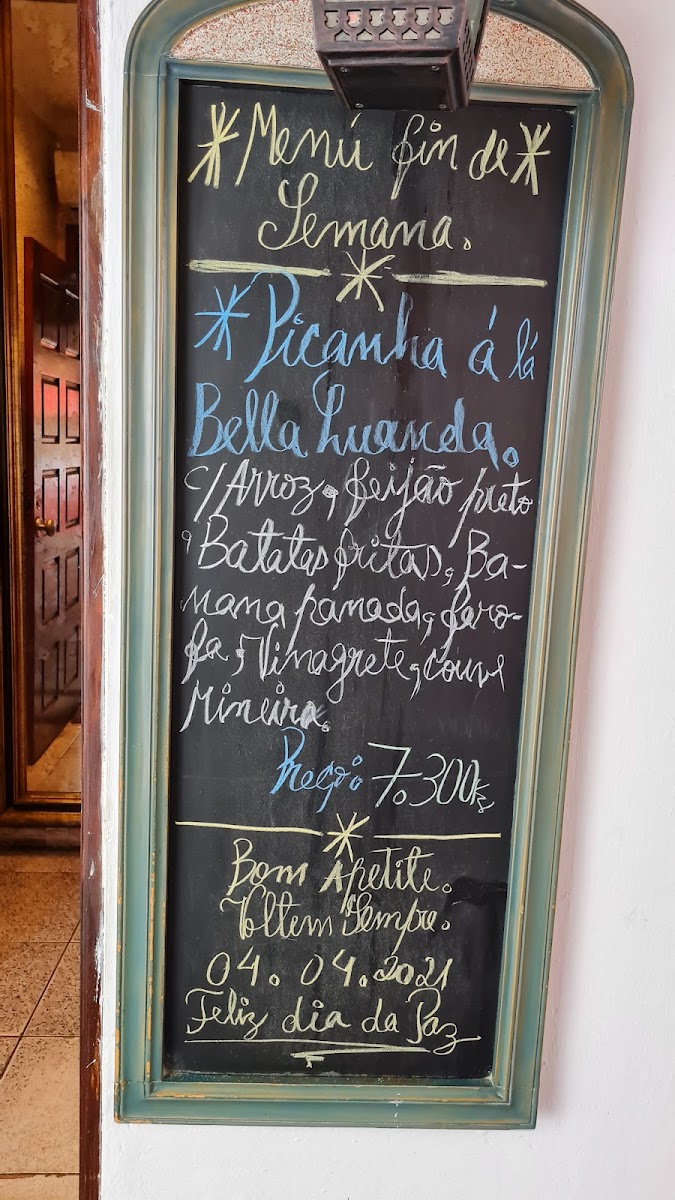 *Menú fin de*
Semana.
*Picanha á lá
Bella Luanda.
c/Arroz, feijão preto
, Batatas fritas, Ba-
nana panada, faro-
fa, Vinagrete, couve
Mineira.
Preço: 7.300kz
Bom Apetite.
Voltem Sempre.
04.04.2021
Feliz dia da Paz